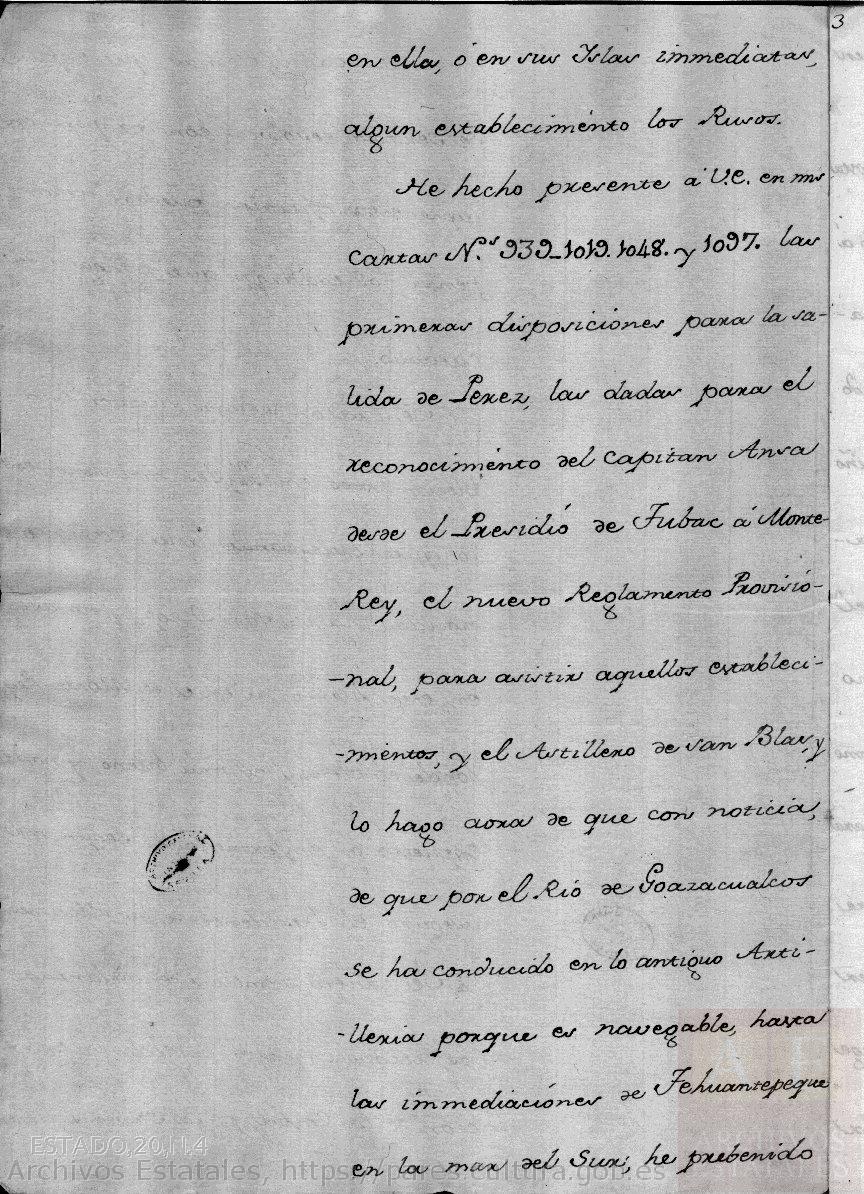 3
en ella, ó en sus Islas immediatas,
algun establecimiénto los Rusos.
He hecho presente á V.E. en mis
Cartas N.os 939_1019. 1048. y 1097. las
primeras disposiciónes para la sa-
lida de Perez, las dadas para el
reconocimiénto del Capitan Ansa
desde el Presidió de Tubac á Monte-
Rey, el nuevo Reglamento Provisió-
-nal, para asistir aquellos estableci-
-miéntos, y el Astillero de San Blas, y
lo hago aora de que con noticia,
de que por el Rió de Goazacualcos
se ha conducido en lo antiguo Arti-
-lleria porque es navegable, hasta
las immediaciónes de Tehuantepeque
en la mar del Sur; he prebenido
ESTADO,20,N.4
Archivos Estatales, https://pares.cultura.gob.es